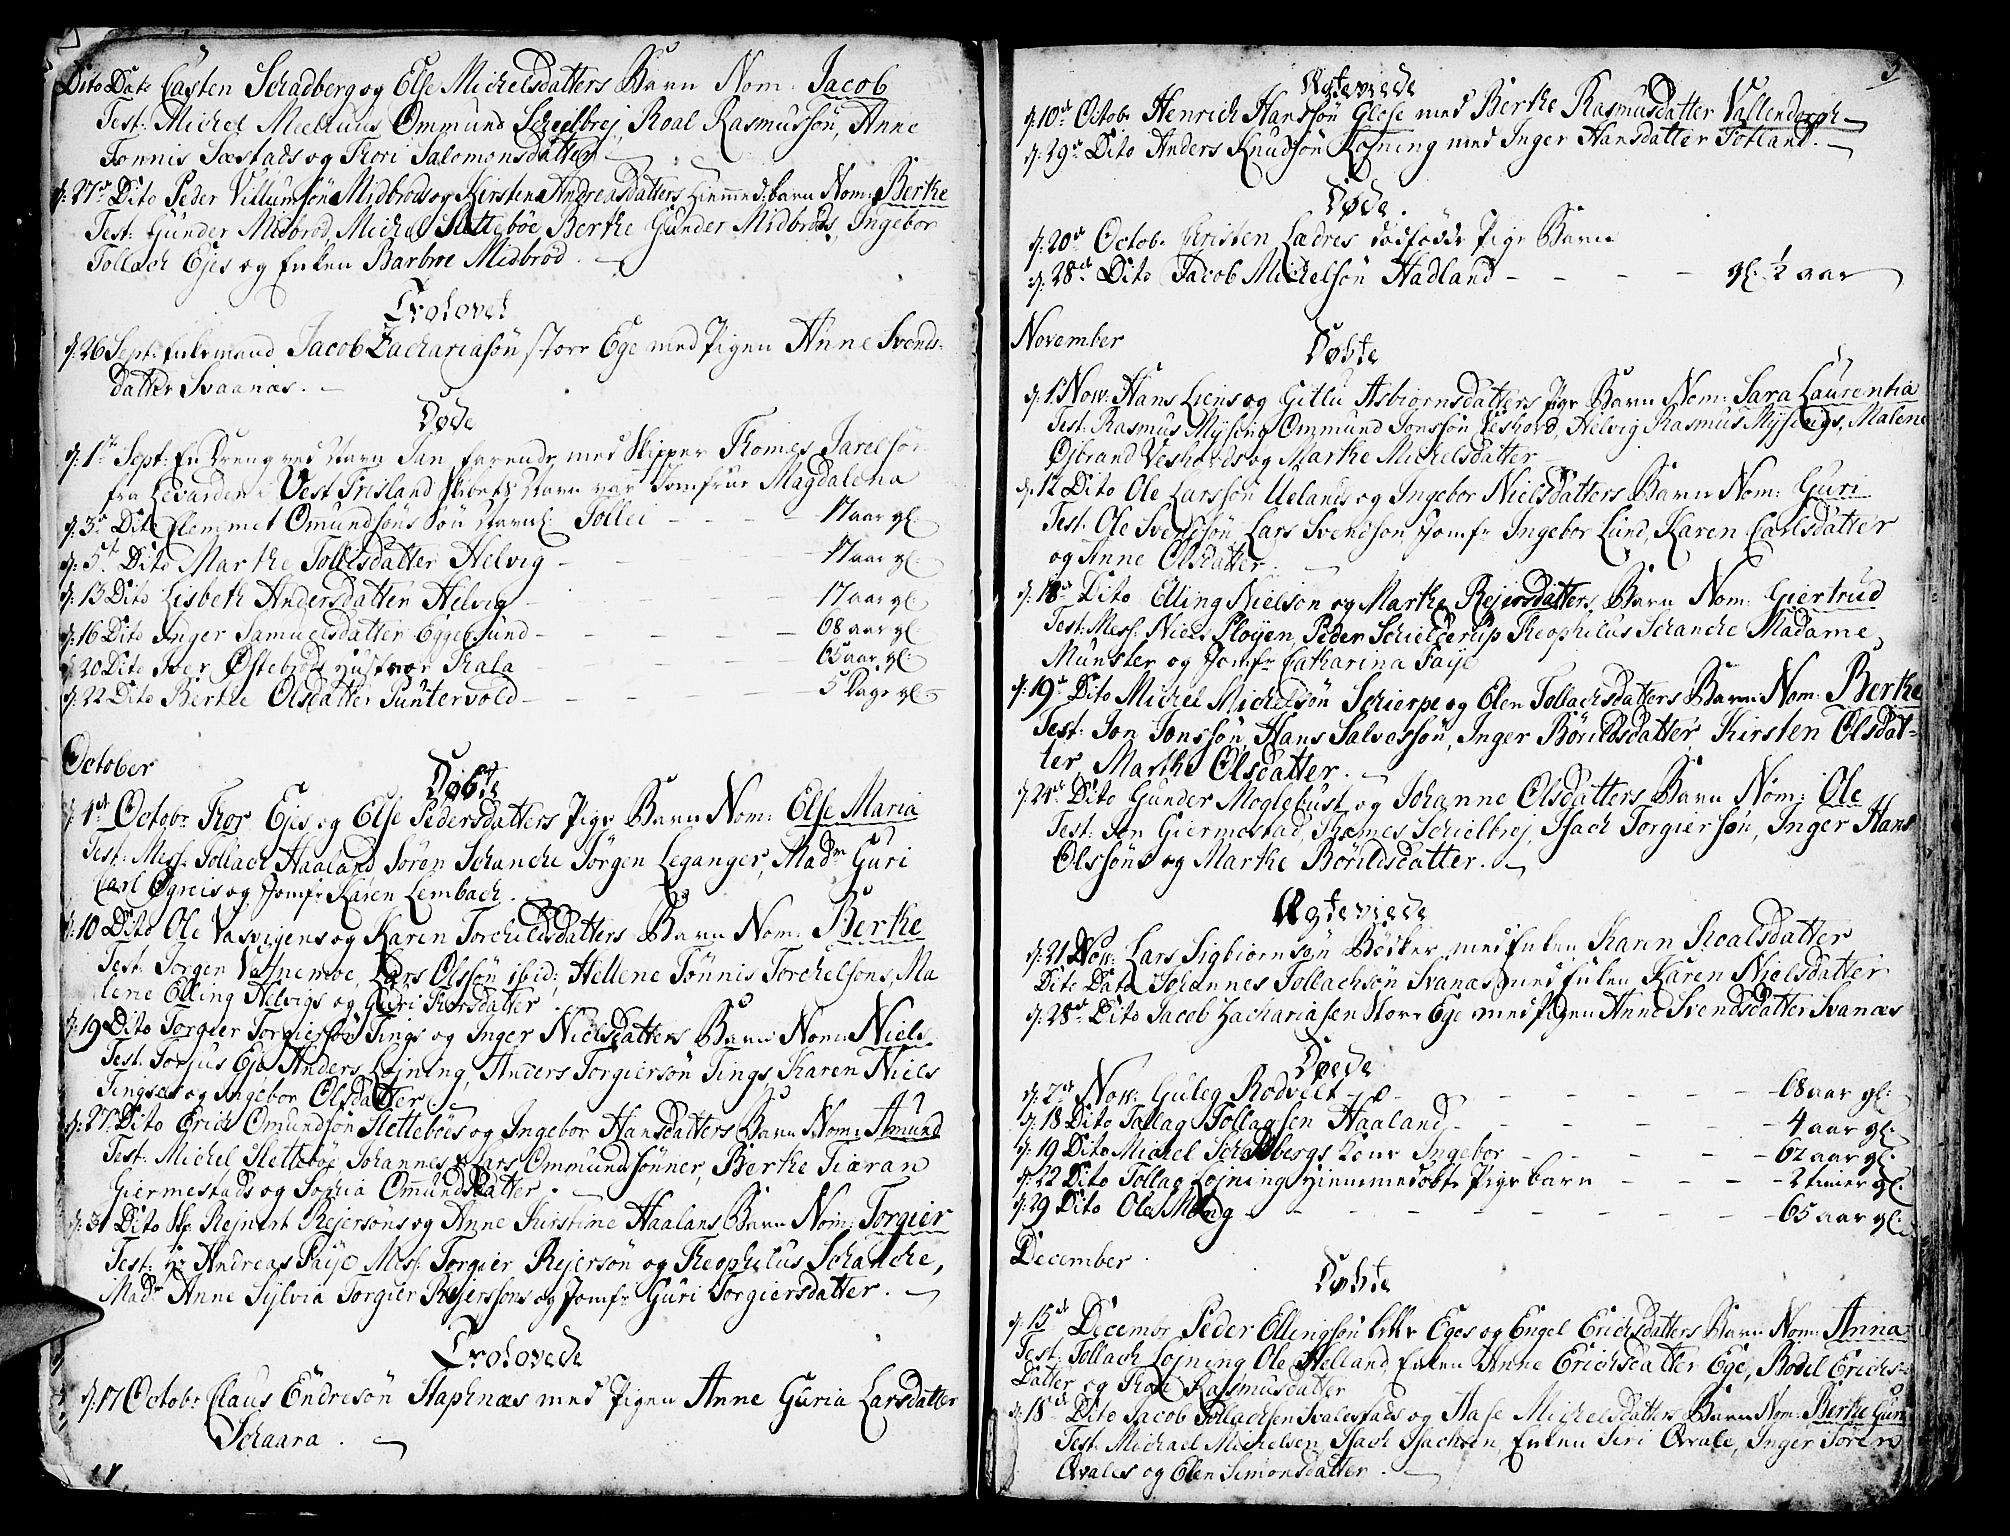 Dito Dato Casten Schadberg og Else Michelsdatters Barn Nom: Jacob
Test: Michel Ommund Scheelbrej, Roal Rasmussön, Anne
Tonnis Sæstads og Thori Salomonsdatter
d: 27de Dito Peder Villumsön Midbröd og Kirsten Andreasdatters Hiemmed: barn Nom: Berthe
Test: Gunder Midbröd, Michel Slettebøe Berthe Gunder Midbröds, Ingebor
Tollach Ejes og Enken Barbroe Midbröd.
Trolovet
d: 26 Sept: Enkemand Jacob Zachariasön store Ege med Pigen Anne Svends-
datter Svaanæs.
Døde
d: 1te Sept: En Dreng ved Navn Jan farende med Skipper Thomes Jarelsör
fra Levarden i Vest Frisland Skibets Navn var Jomfrue Magdalena
d: 3de Dito Clemmet Omundsöns Sön Navnl: Tollei - - - 17 aar gl:
d: 5te Dito Marthe Tollesdatter Helvig - - - 17 aar gl:
d: 13 Dito Lisbeth Andersdatter Helvig - - - 17 aar gl:
d: 16 Dito Inger Samuelsdatter Eggesund - - - 68 aar gl:
d: 20 Dito Iver Östebröds Hustroe Thala - - - 65 aar gl:
d: 22 Dito Berthe Olsdatter Puntervold - - - 5 Dage gl:
October
Døbte
d: 1ste Octobr Thor Ejes og Else Pedersdatters Pige Barn Nom: Else Maria
Test: Mess: Tollach Haaland, Sören Schanche Jörgen Leganger, Madm Guri
Carl Ogreis og Jomfr Karen Lembach.
d: 10 Dito Ole Vasvigens og Karen Torchildsdatters Barn Nom: Berthe
Test: Jorgen Vatnemoe, Lars Olssön ibid: Hellene Tönnis Torchelsons, Ma
lene Elling Helvigs og Guri Thorsdatter
d: 19 Dito Torgier Torgiersön Tings og Inger Nielsdatters Barn Nom: Niels
Test: Torjus Eje Anders Löjning, Anders Torgiersön Tings, Karen Niels
Tingsas og Ingebor Olsdatter.
d: 27de Dito Erich Omundsön Slettebøes og Ingebor Hansdatters Barn Nom: Amund
Test: Michel Slettebøe Johannes & Lars Ommundssönner, Berthe Tiæran
Giermestads og Sophia Omundsdatter.
d: 31 Dito Sr Rejnert Rejersöns og Anne Kirstine Haalans Barn Nom: Torgier
Test: Hr Andreas Faÿe Mess: Torgier Rejersön og Theophilus Schanche,
Madm Anne Sylvia Torgier Rejerssons og Jomfr Guri Torgiersdatter.
Trolovede
d: 17 Octobr Claus Endresön Staphnæs med Pigen Anne Guria Larsdatter
Schaara.
Ægteviede
d: 10de Octobr Henrich Hanssön Glose med Berthe Rasmusdatter Vallendorph
d: 29de Dito Anders Knudsön Löjning med Inger Hansdatter Totland.
Døde.
d: 20de Octobr Christen Lædres dödfödde Pige Barn
d: 28de Dito Jacob Michelsön Hadland - - - gl: 1/2 aar
November
Døbte
d: 1 Nov: Hans Liens og Gitlu Asbiornsdatters Pige Barn Nom: Sara Laurentia
Test: Rasmus Mÿsing Ommund Jonssön Veshovd, Helvig Rasmus Mÿsings, Malene
Ojbrand Veshovds og Marthe Michelsdatter
d: 12 Dito Ole Larssön Uelands og Ingebor Nielsdatters Barn Nom: Guri
Test: Ole Svendsön, Lars Svendsön Jomfr Ingebor Lund, Karen Carlsdatter
og Anne Olsdatter.
d: 18de Dito Elling Nielsön og Marthe Rejersdatters Barn Nom: Giertrud
Test: Mess: Niels Plöyen, Peder Schielderup Theophilus Schanche Madame
Münster og Jomfr Catharina Faÿe
d: 19de Dito Michel Michelsön Schierpe og Elen Tollachsdatters Barn Nom: Berthe
Test: Jon Jonssön, Hans Salvessön, Inger Börildsdatter, Kirsten Olsdat-
ter Marthe Olsdatter.
d: 24de Dito Gunder Moglebust og Johanne Olsdatters Barn Nom: Ole
Test: Jon Giermestad, Thomes Schielbrej, Isach Torgiersön, Inger Hans
Olssöns og Marthe Börildsdatter.
Ægteviede
d: 21 Nov: Lars Sigbiornsön Bödker med Enken Karen Roalsdatter
Dito Dato Johannes Tollachsön Svanæs med Enken Karen Nielsdatter
d: 28de Dito Jacob Zachariasen Store Ege med Pigen Anne Svendsdatter Svanæs
Døede
d: 2de Nov: Guleg Rodvelt - - - 68 aar gl:
d: 18 Dito Tallag Tollagsen Haaland - - - 4 aar gl:
d: 19 Dito Michel Schadbergs Kone Ingebor - - - 62 aar gl:
d: 22 Dito Tollag Lojning Hiemmedobte Pige barn - - - 2 timer gl:
d: 29 Dito Ole Mong - - - 65 aar gl:
December
Døbte
d: 15de Decembr Peder Ellingsön lille Eges og Engel Erichsdatters Barn Nom: Anna
Test: Tollach Lojning Ole Helland, Enken Anne Erichsdatter Ege, Bodel Erichs-
datter og Thore Rasmusdatter
d: 18de Dito Jacob Tollachsen Svalestads og Aase Michelsdatters Barn Nom: Berthe Guri
Test: Michael Michelsen, Isach Isachsen, Enken Siri Qvale, Inger Sören
Qvales og Elen Simonsdatter.